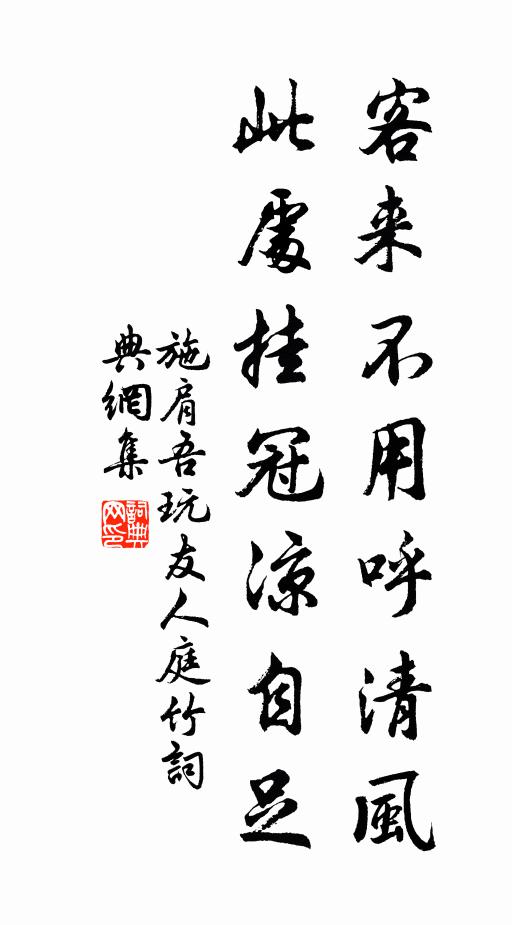 客来不用呼清風
此處挂冠涼自足
施肩吾玩友人庭竹詞
典網集
詞典網印